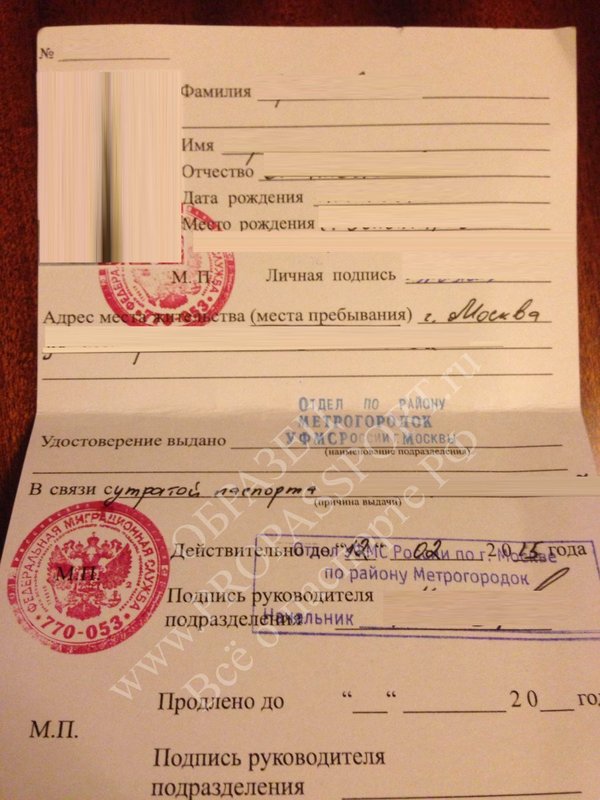 №
Фамилия
Имя
Отчество
Дата рождения
Место рождения
М. П. Личная подпись
ФЕДЕРАЛЬНАЯ СЛУЖБА
770-053
Адрес места жительства (места пребывания) г. Москва
ОТДЕЛ ПО РАЙОНУ
МЕТРОГОРОДОК
УФМС РОССИИ Г. МОСКВЫ
Удостоверение выдано
(наименование подразделения)
В связи с утратой паспорта
(причина выдачи)
ФЕДЕРАЛЬНАЯ МИГРАЦИОННАЯ СЛУЖБА
770-053
М.П.
Действительно до "12" 02 2015 года
Отдел УФМС России по г. Москве
по району Метрогородок
Начальник
Подпись руководителя
подразделения
Продлено до “ “ 20 год
М.П.
Подпись руководителя
подразделения
ОБРАЗЕЦ
www.PROPASSPORT.ru
Всё о паспорте РФ